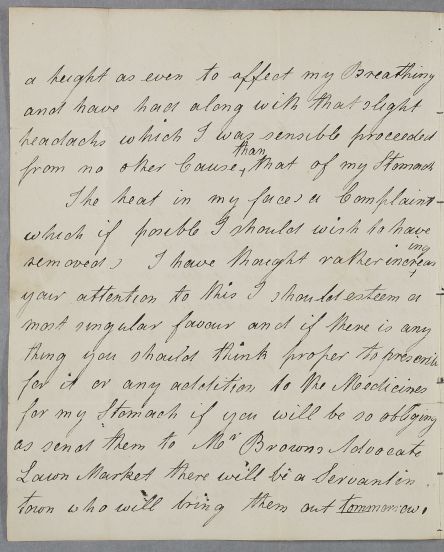 a height as even to affect my Breathing
and have had along with that slight
headachs which I was sensible proceeded
from no other Cause, than that of my Stomach
The heat in my face is a Complaint
which if posible I should wish to have
removed I have thought rather increasing
your attention to this I should esteem a
most singular favour and if there is any
thing you should think proper to prescribe
for it or any addition to the Medicines
for my Stomach if you will be so obliging
as send them to Mr Browns Advocate
Lawn Market there will be a Servant in
town who will bring them out tommorrow.